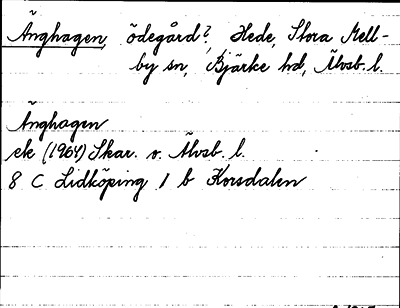 Änghagen, ödegård?, Hede, Stora Mell-
by sn, Bjärke hd, Älvsb. l.
Änghagen
ek (1964) Skar. o. Älvsb. l.
8 C Lidköping 1 b Korsdalen